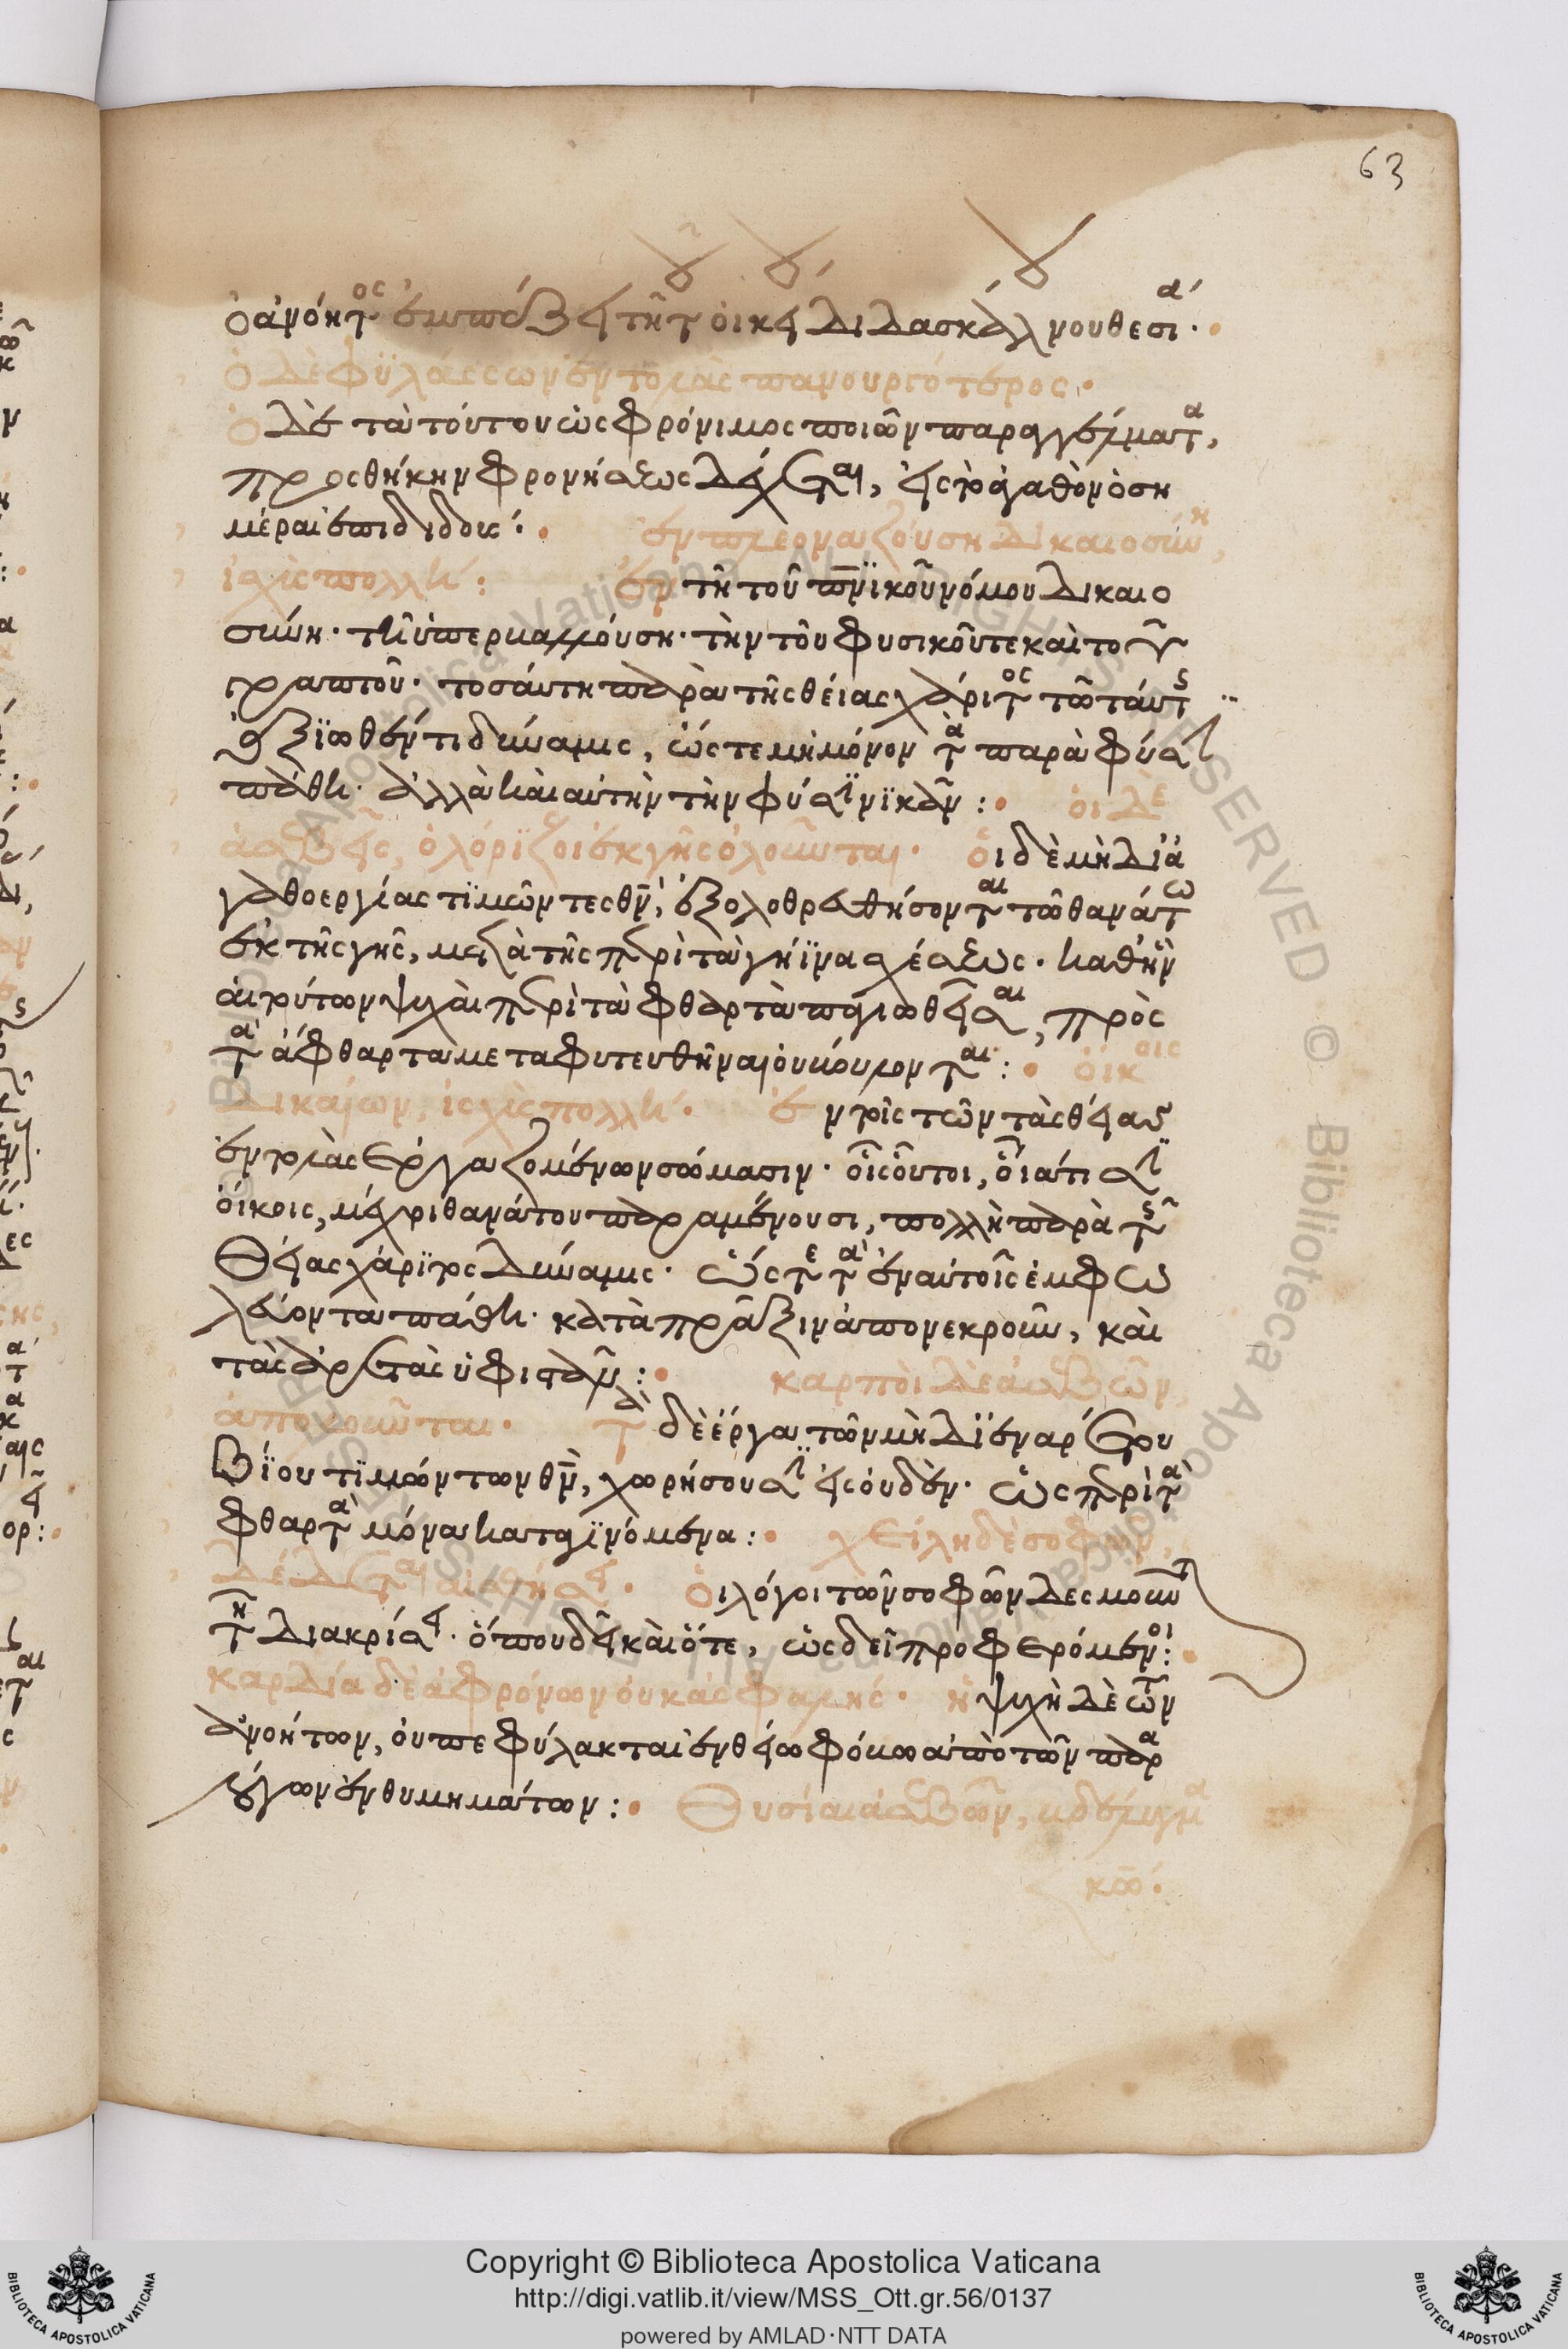 63
ὁ ἀνόητος ἐμπαίζει τῆ τοῦ οἰκείου διδασκάλου νουθεσία·
ὁ δὲ φυλάσσων ἐντολὰς πανουργότερος·
Ὁ δὲ τὰ τούτου ὡς φρόνιμος ποιῶν παραγγέλματα,
προσθήκην φρονήσεως δέχεται, εἰς τὸ ἀγαθὸν ὁση
μέραι ἐπιδιδούς: ἐν πλεοναζούση δικαιοσύνη,
ἰσχὺς πολλή: ἐν τῆ τοῦ πνικοῦ νόμου δικαιο
σύνη· τῆ ὑπερβαλλούση· τὴν τοῦ φυσικοῦ τε καὶ τοῦ
γραπτοῦ· τοσαύτη παρὰ τῆς θείας χάριτος τῶ ταύτης
ἀξιωθέντι δύναμις, ὥστε μὴ μόνον τὰ παρὰ φύσιν
πάθη· ἀλλὰ καὶ αὐτὴν τὴν φύσιν νικᾶν: οἱ δὲ
ἀσεβεῖς, ὁλόριζοι ἐκ γῆς ὀλοῦνται· Οἱ δὲ μὴ δι' ἀ
γαθοεργίας τιμῶντες θν, ἐξολοθρευθήσονται τῶ θανάτω
ἐκ τῆς γῆς, μετὰ τῆς περὶ τὰ γήινα σχέσεως· καθ' ἣν
αἱ τούτων ψυχαὶ περὶ τὰ φθαρτὰ παγιωθεῖσαι, πρὸς
τὰ ἄφθαρτα μεταφυτευθῆναι οὐ βούλονται: οἴκοις
δικαίων, ἰσχὺς πολλή· ἐν τοῖς τῶν τὰς θείας
ἐντολὰς ἐργαζομένων σώμασιν· οἷς οὗτοι, οἱονεί τισιν
οἴκοις, μέχρι θανάτου παραμένουσι, πολλὴ παρὰ τῆς
Θείας χάριτος δύναμις· ὥστε τὰ ἐν αὐτοῖς ἐμφω
λεύοντα πάθη· κατὰ πρᾶξιν ἀπονεκροῦν, καὶ
τὰς ἀρετὰς ὑφιστᾶν: καρποὶ δὲ ἀσεβῶν,
ἀπολοῦνται· Τὰ δὲ ἔργα τῶν μὴ δι' ἐναρέτου
βίου τιμώντων θν, χωρήσουσιν εἰς οὐδέν· ὡς περὶ τὰ
φθαρτὰ μόνα καταγινόμενα: χείλη δὲ σοφῶν,
δέδεται αἰσθήσει· Οἱ λόγοι τῶν σοφῶν δεσμοῦνται
τῆ διακρίσει· ὅπου δεῖ καὶ ὅτε, ὡς δεῖ προφερόμενοι:
καρδία δὲ ἀφρόνων οὐκ ἀσφαλής· ἡ ψυχὴ δὲ τῶν
ἀνοήτων, οὐ πεφύλακται ἐν θείω φόβω ἀπὸ τῶν παρα
λόγων ἐνθυμημάτων: Θυσίαι ἀσεβῶν, βδέλυγμα
κω·
Copyright © Biblioteca Apostolica Vaticana
http://digi.vatlib.it/view/MSS_Ott.gr.56/0137
powered by AMLAD·NTT DATA